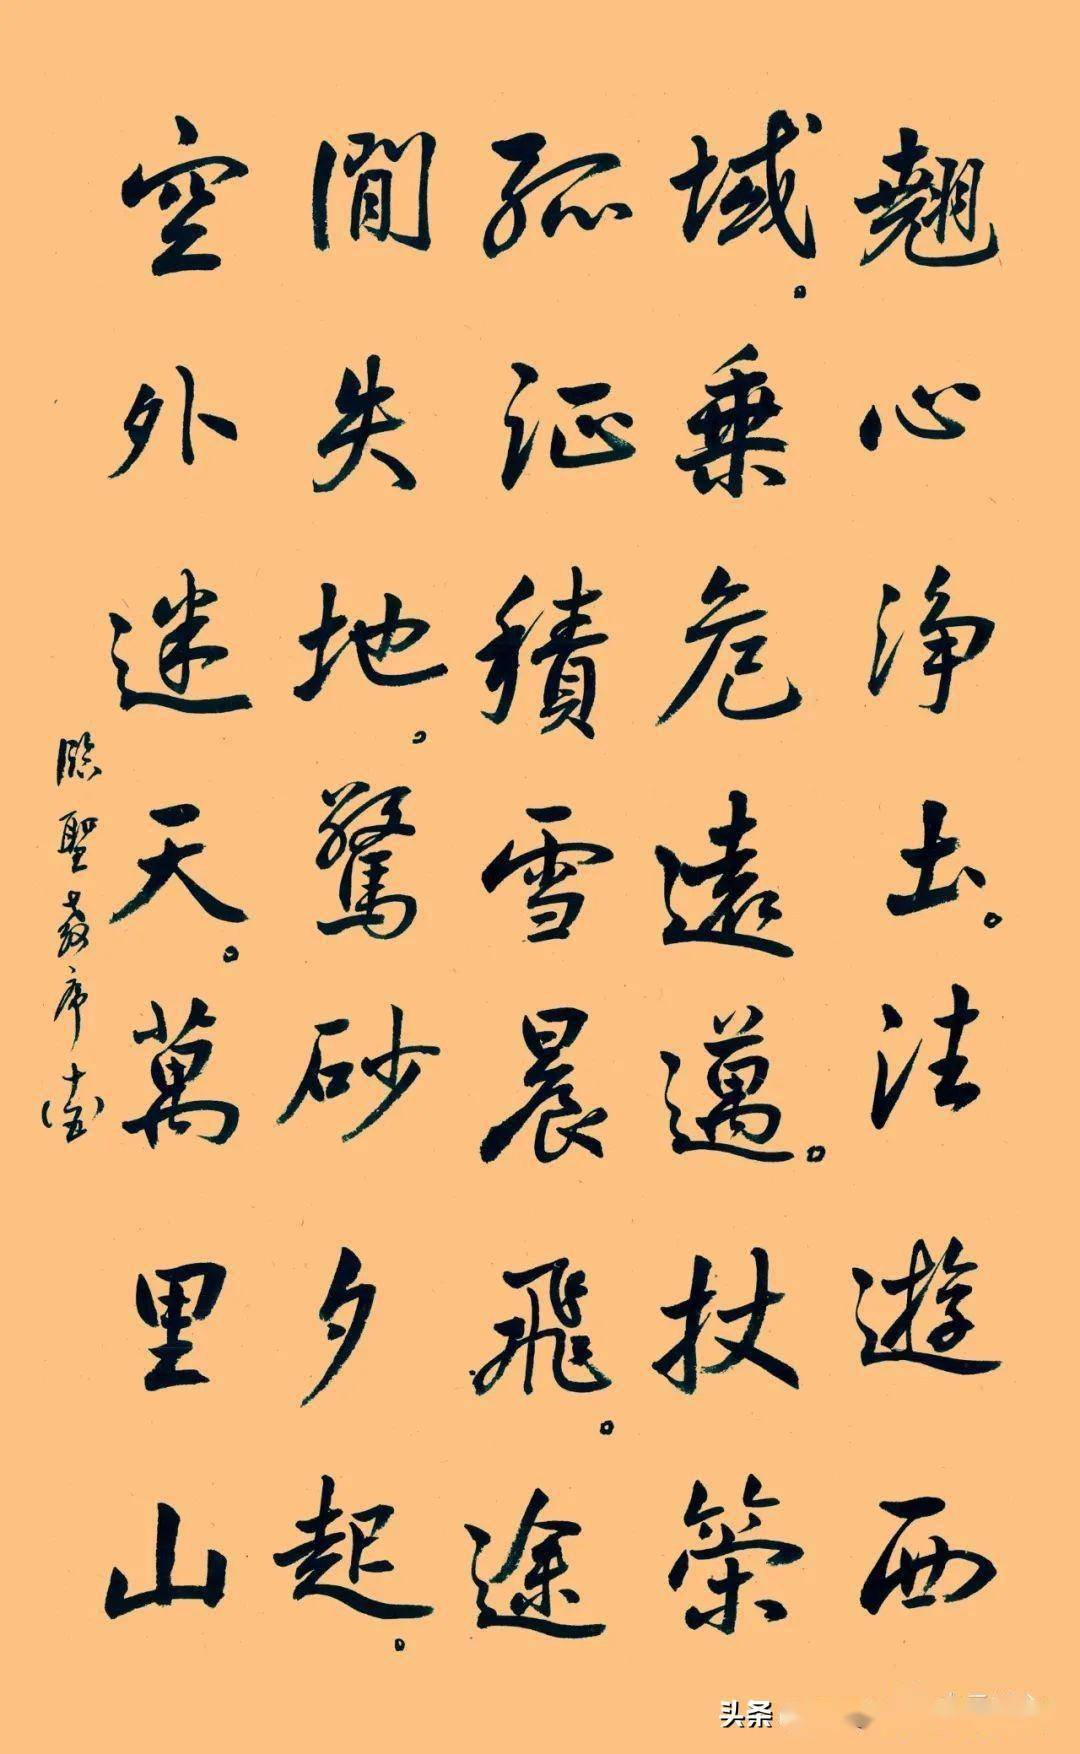 翹心浄土。法遊西
域。乗危遠邁。杖策
孤征積雪晨飛。途
間失地。驚砂夕起。
空外迷天。萬里山
臨聖教序十壹
头条